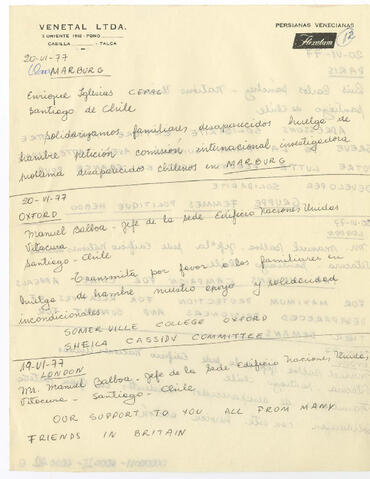 VENETAL LTDA.
2 ORIENTE 1162 - FONO
CASILLA - TALCA
PERSIANAS VENECIANAS
Flexalum
12
20-VI-77
MARBURG
Enrique Iglesias CEPAL
Santiago de Chile
Solidarizamos familiares desaparecidos huelga de
hambre petición comisión internacional investigadora
problema desaparecidos chilenos en MARBURG
20-VI-77
OXFORD
Manuel Balboa - jefe de la sede Edificio Naciones Unidas
Vitacura
Santiago - Chile
Transmita por favor a los familiares en
huelga de hambre nuestro apoyo y solidaridad
incondicionales
SOMERVILLE COLLEGE OXFORD
SHEILA CASSIDY COMMITTEE
19-VI-77
LONDON
Mr. Manuel Balboa - jefe de la sede Edificio Naciones Unidas
Vitacura - Santiago - Chile
OUR SUPPORT TO YOU ALL FROM MANY
FRIENDS IN BRITAIN